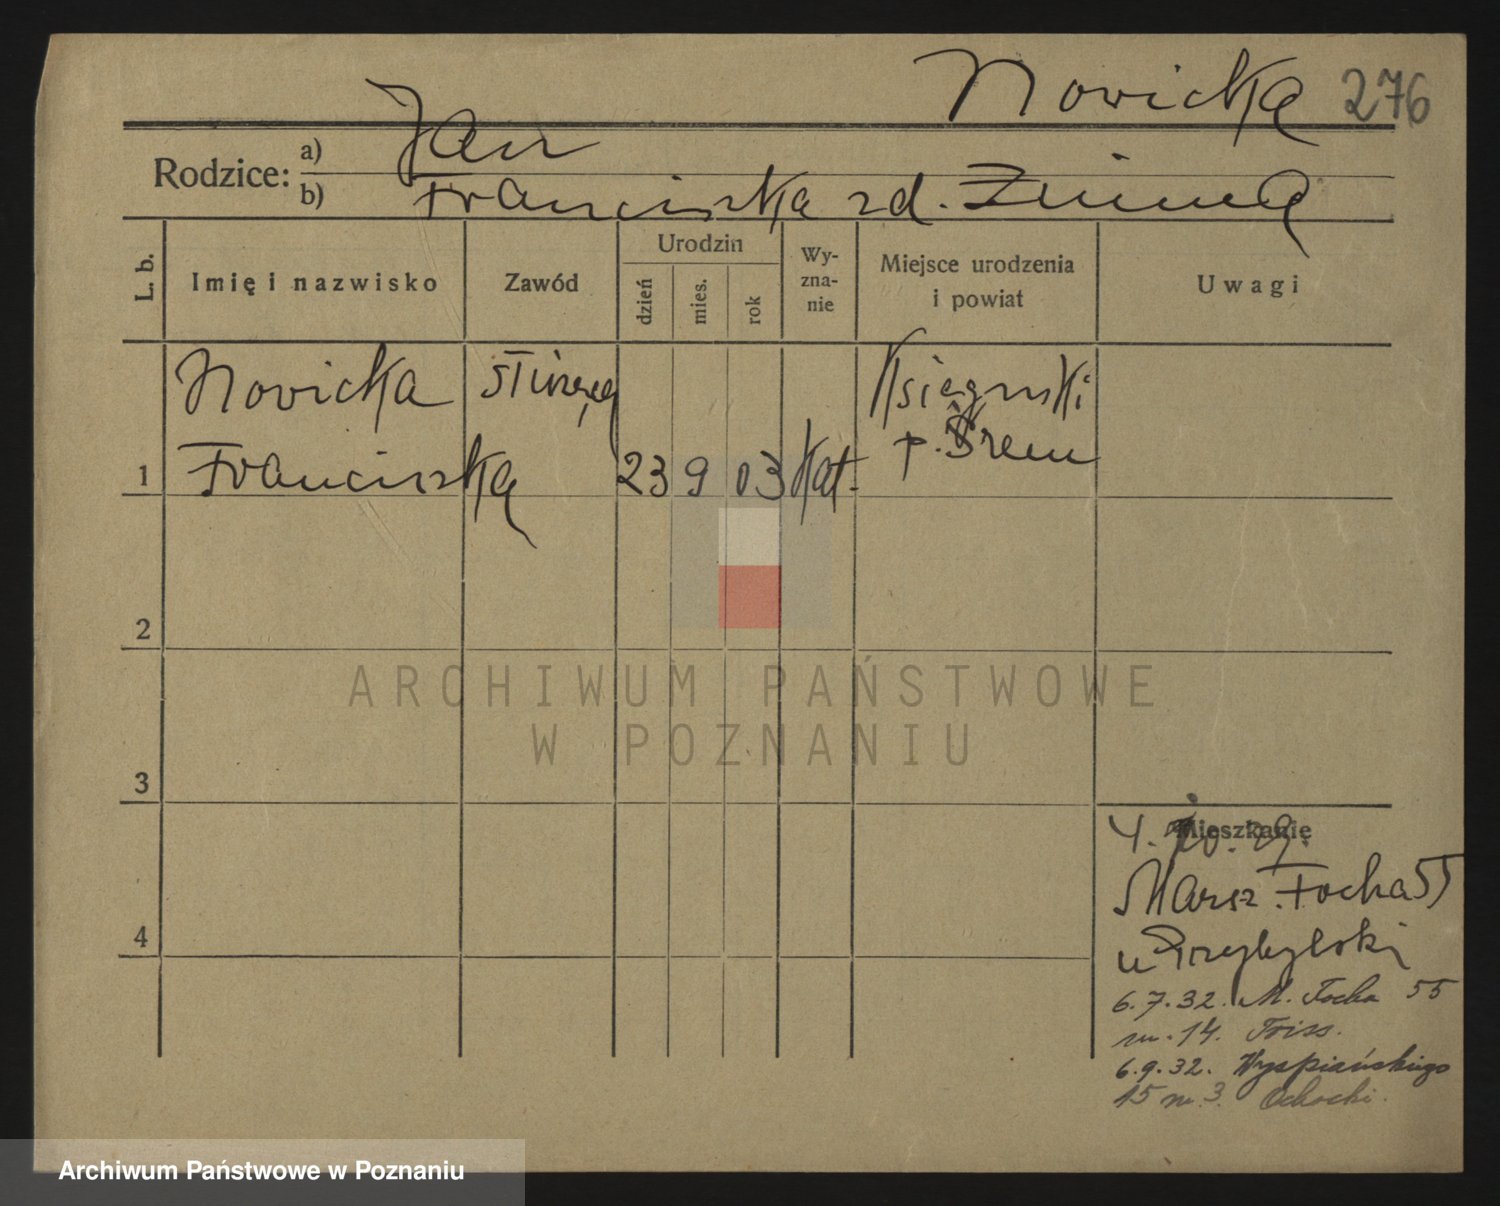 Nowicka 276
Rodzice:
a) Jan
b) Franciszka zd.
L. b.
Imię i nazwisko
Zawód
Urodzin
dzień
mies.
rok
Wy-
zna-
nie
Miejsce urodzenia
i powiat
Uwagi
Nowicka
Franciszka
służąca
23 9 03
kat.
p. Śrem
1
2
3
4
ARCHIWUM PAŃSTWOWE
W POZNANIU
Mieszkanie
Marsz. Focha 55
u Przybylski
6.7.32. M. Focha 55
m. 14.
6.9.32. Wyspiańskiego
15 m. 3. Ochocki.
Archiwum Państwowe w Poznaniu